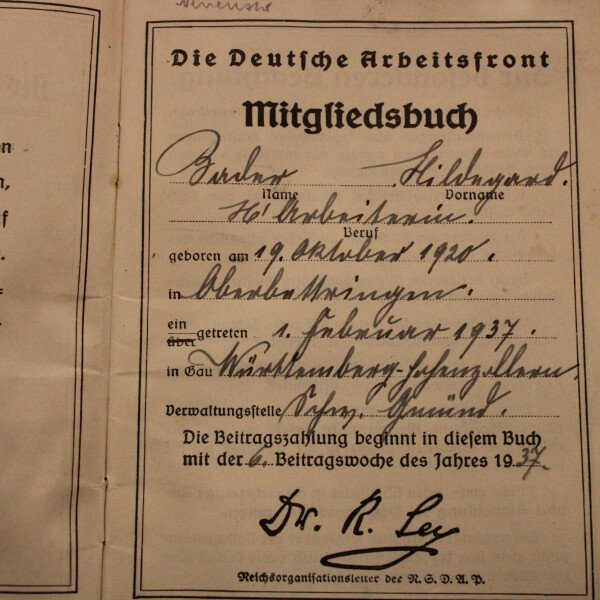 Die Deutsche Arbeitsfront
Mitgliedsbuch
Bader Hildegard.
Name Vorname
H'Arbeiterin.
Beruf
geboren am 19. Oktober 1920.
in Oberbettringen.
ein
über getreten 1. Februar 1937.
in Gau Württemberg-Hohenzollern.
Verwaltungsstelle Schw. Gmünd.
Die Beitragszahlung beginnt in diesem Buch
mit der 6. Beitragswoche des Jahres 1937.
Dr. R. Ley
Reichsorganisationsleiter der N.S.D.A.P.